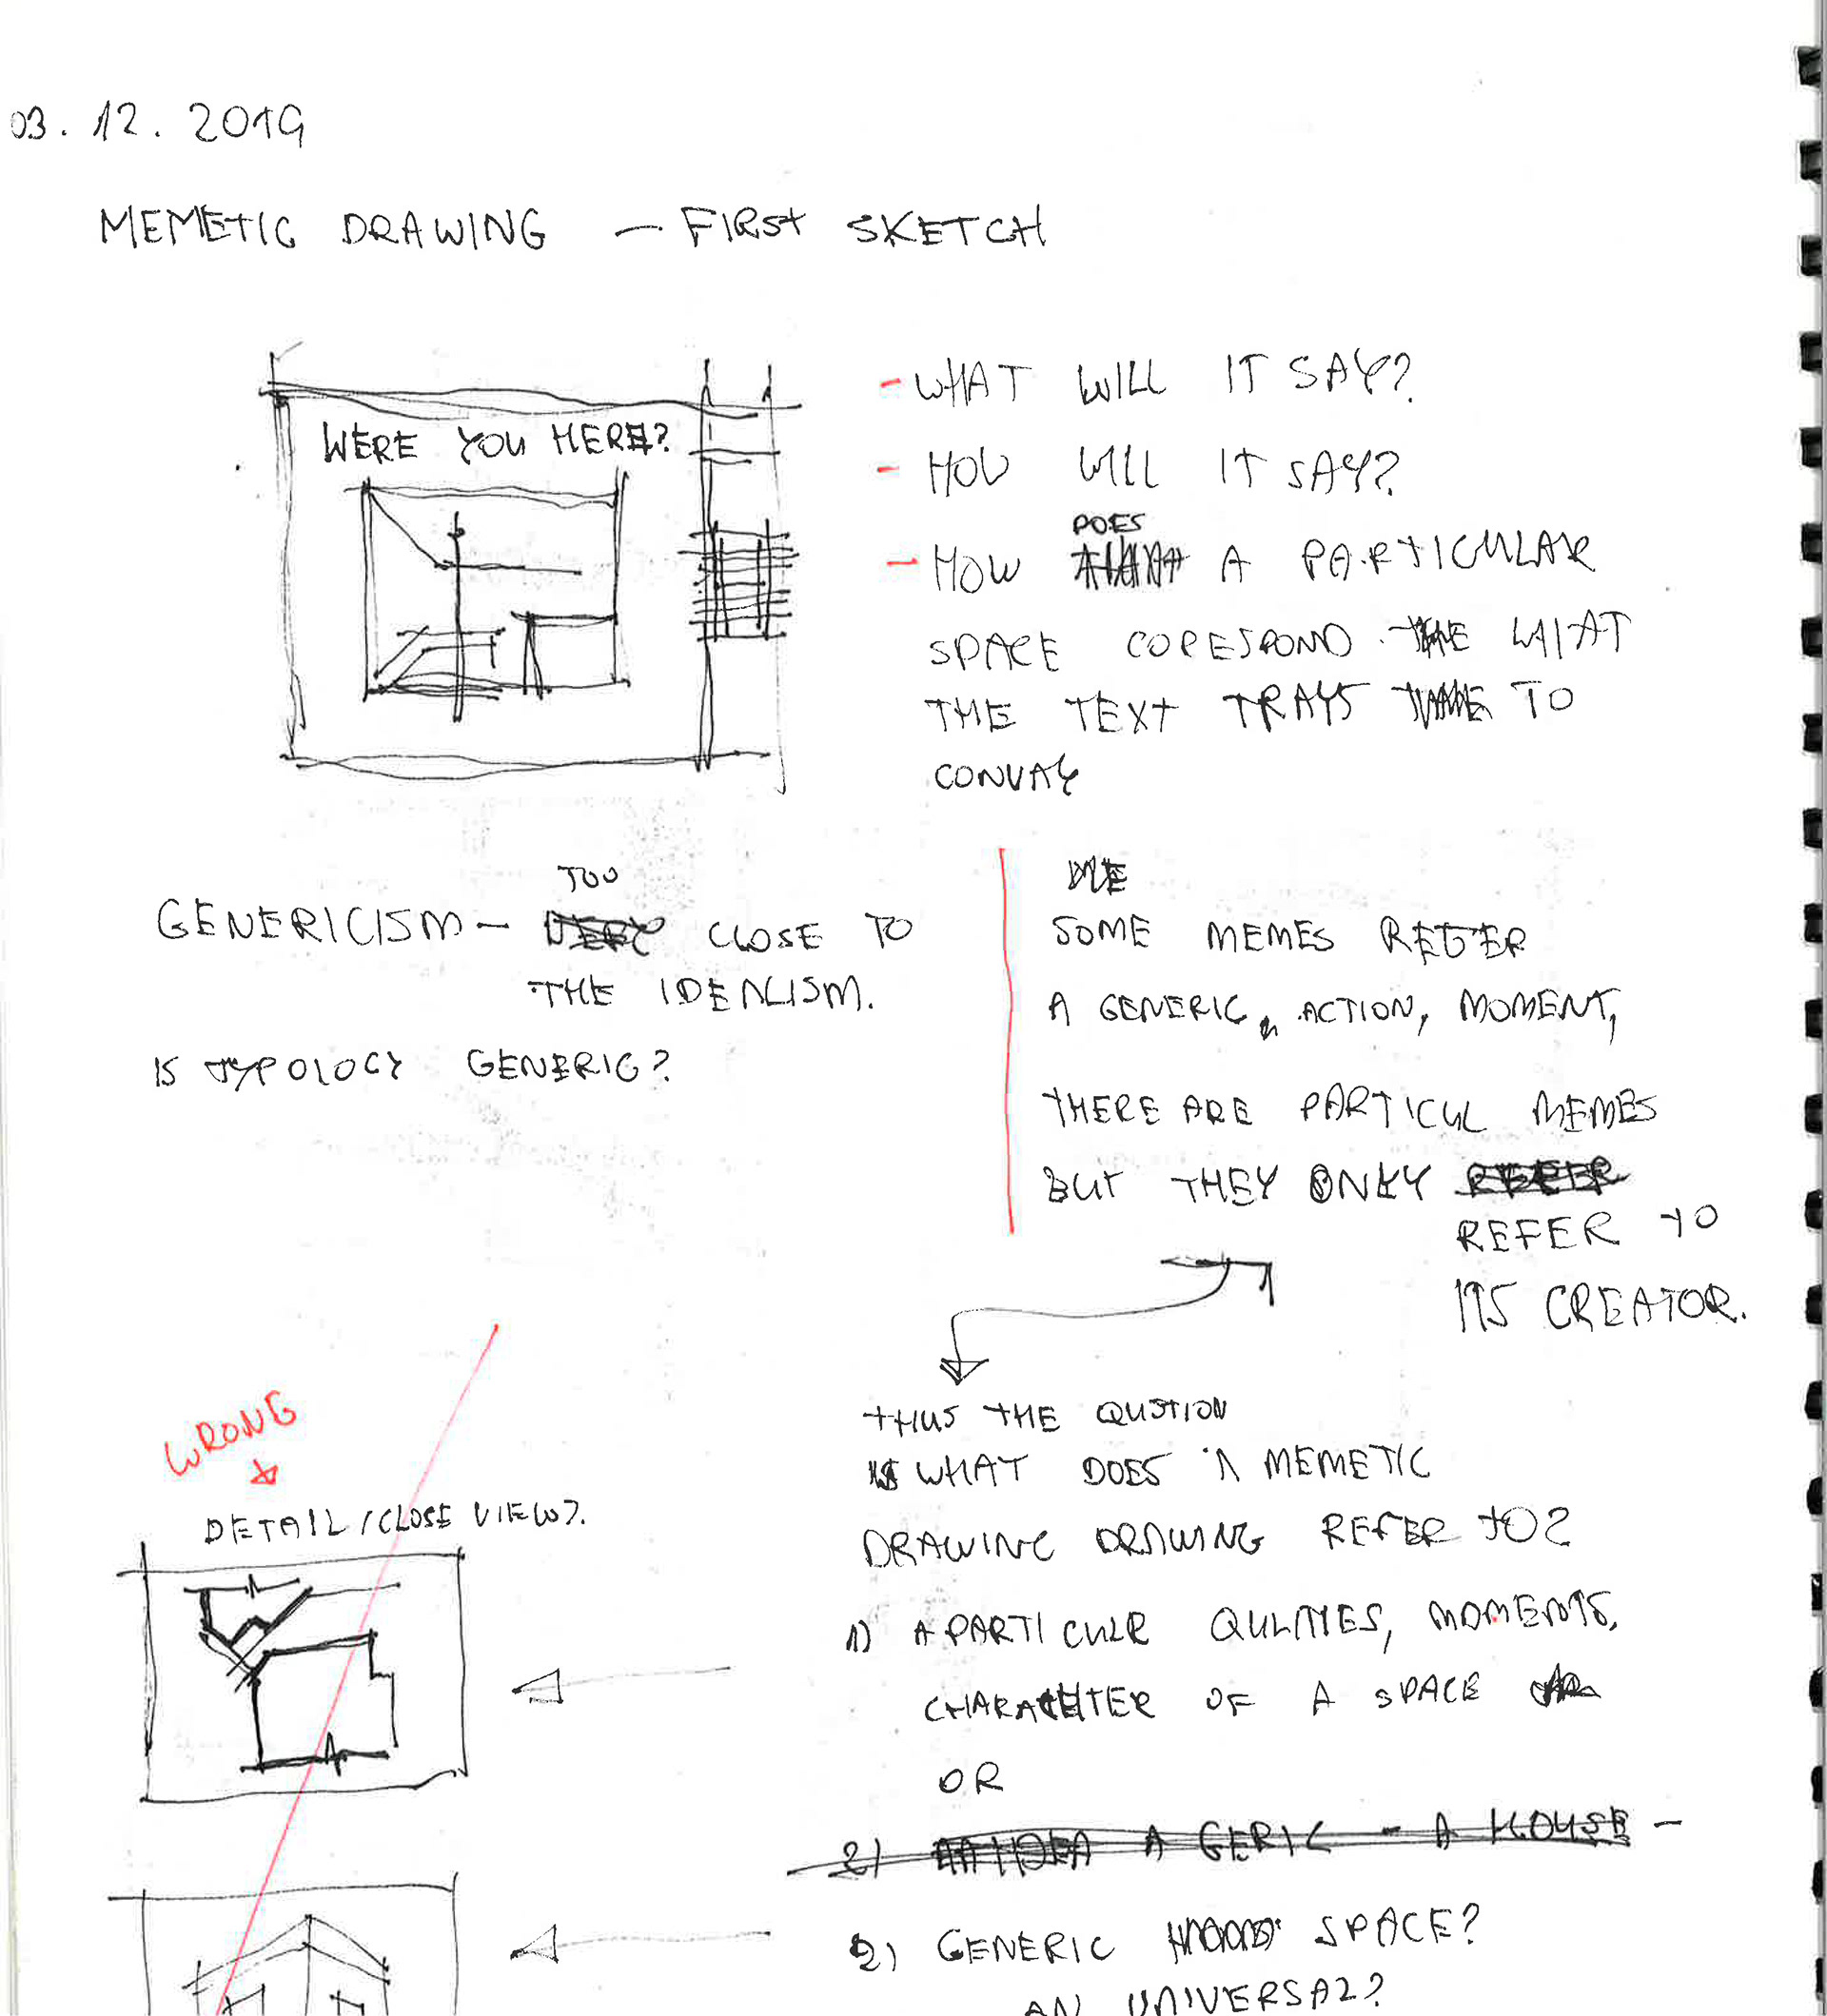 03. 12. 2019
MEMETIC DRAWING — FIRST SKETCH
WERE YOU HERE?
- WHAT WILL IT SAY?
- HOW WILL IT SAY?
DOES
- HOW A PARTICULAR
SPACE CORESPOND THE WHAT
THE TEXT TRAYS TO
CONVAY
TOO
GENERICISM - VERY CLOSE TO
THE IDEALISM.
IS TYPOLOGY GENERIC?
WE
SOME MEMES REFER
A GENERIC, ACTION, MOMENT,
THERE ARE PARTICUL MEMES
BUT THEY ONLY REFER
REFER TO
ITS CREATOR.
THUS THE QUSTION
IS WHAT DOES A MEMETIC
DRAWING DRAWING REFER TO?
1) A PARTICULR QULITIES, MOMENTS,
CHARACHTER OF A SPACE
OR
2) AN IDEA A GERIC - A HOUSE -
2) GENERIC SPACE?
AN UNIVERSAL?
WRONG
DETAIL/CLOSE VIEW?.